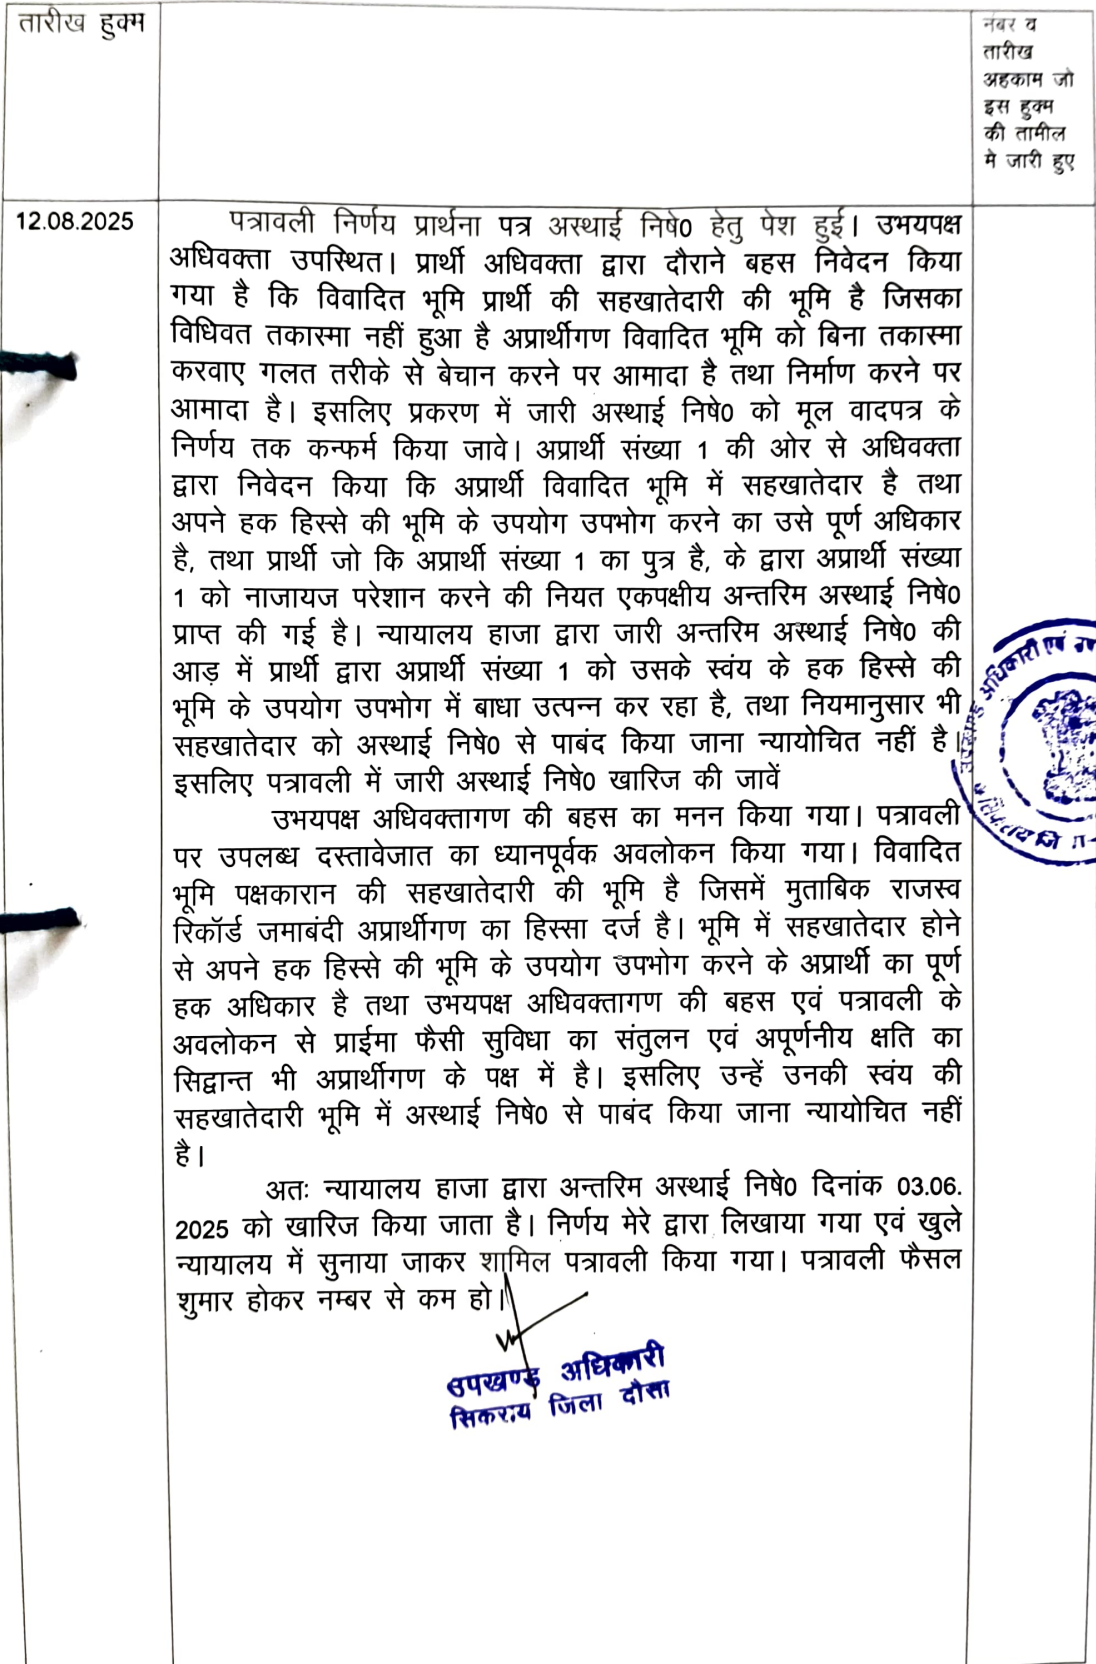 तारीख हुक्म
नंबर व
तारीख
अहकाम जो
इस हुक्म
की तामील
मे जारी हुए
12.08.2025
पत्रावली निर्णय प्रार्थना पत्र अस्थाई निषे0 हेतु पेश हुई। उभयपक्ष
अधिवक्ता उपस्थित। प्रार्थी अधिवक्ता द्वारा दौराने बहस निवेदन किया
गया है कि विवादित भूमि प्रार्थी की सहखातेदारी की भूमि है जिसका
विधिवत तकास्मा नहीं हुआ है अप्रार्थीगण विवादित भूमि को बिना तकास्मा
करवाए गलत तरीके से बेचान करने पर आमादा है तथा निर्माण करने पर
आमादा है। इसलिए प्रकरण में जारी अस्थाई निषे0 को मूल वादपत्र के
निर्णय तक कन्फर्म किया जावे। अप्रार्थी संख्या 1 की ओर से अधिवक्ता
द्वारा निवेदन किया कि अप्रार्थी विवादित भूमि में सहखातेदार है तथा
अपने हक हिस्से की भूमि के उपयोग उपभोग करने का उसे पूर्ण अधिकार
है, तथा प्रार्थी जो कि अप्रार्थी संख्या 1 का पुत्र है, के द्वारा अप्रार्थी संख्या
1 को नाजायज परेशान करने की नियत एकपक्षीय अन्तरिम अस्थाई निषे0
प्राप्त की गई है। न्यायालय हाजा द्वारा जारी अन्तरिम अस्थाई निषे0 की
आड़ में प्रार्थी द्वारा अप्रार्थी संख्या 1 को उसके स्वंय के हक हिस्से की
भूमि के उपयोग उपभोग में बाधा उत्पन्न कर रहा है, तथा नियमानुसार भी
सहखातेदार को अस्थाई निषे0 से पाबंद किया जाना न्यायोचित नहीं है।
इसलिए पत्रावली में जारी अस्थाई निषे0 खारिज की जावें
उभयपक्ष अधिवक्तागण की बहस का मनन किया गया। पत्रावली
पर उपलब्ध दस्तावेजात का ध्यानपूर्वक अवलोकन किया गया। विवादित
भूमि पक्षकारान की सहखातेदारी की भूमि है जिसमें मुताबिक राजस्व
रिकॉर्ड जमाबंदी अप्रार्थीगण का हिस्सा दर्ज है। भूमि में सहखातेदार होने
से अपने हक हिस्से की भूमि के उपयोग उपभोग करने के अप्रार्थी का पूर्ण
हक अधिकार है तथा उभयपक्ष अधिवक्तागण की बहस एवं पत्रावली के
अवलोकन से प्राईमा फैसी सुविधा का संतुलन एवं अपूर्णनीय क्षति का
सिद्वान्त भी अप्रार्थीगण के पक्ष में है। इसलिए उन्हें उनकी स्वंय की
सहखातेदारी भूमि में अस्थाई निषे0 से पाबंद किया जाना न्यायोचित नहीं
है।
अतः न्यायालय हाजा द्वारा अन्तरिम अस्थाई निषे0 दिनांक 03.06.
2025 को खारिज किया जाता है। निर्णय मेरे द्वारा लिखाया गया एवं खुले
न्यायालय में सुनाया जाकर शामिल पत्रावली किया गया। पत्रावली फैसल
शुमार होकर नम्बर से कम हो।
उपखण्ड अधिकारी
सिकराय जिला दौसा
उपखण्ड अधिकारी एवं
सिकराय जि